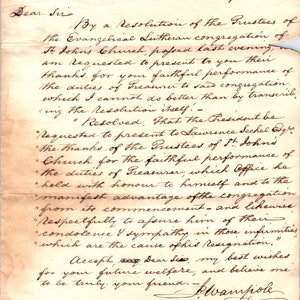 Dear Sir
By a Resolution of the Trustees of
the Evangelical Lutheran congregation of
St Johns Church passed last evening, I
am requested to present to you their
thanks for your faithful performance of
the duties of Treasurer to said congregation
which I cannot do better than by transcrib-
ing the Resolution itself:
"Resolved, That the President be
"requested to present to Lawrence Seckel Esqr
"the thanks of the Trustees of St Johns
"Church for the faithful performance of
"the duties of Treasurer, which Office he
"held with honour to himself and to the
"manifest advantage of the congregation
"from its commencement and likewise
"respectfully to assure him of their
"condolence & sympathy in those infirmities
"which are the cause of his Resignation,"
Accept Dear Sir, my best wishes
for your future welfare, and believe me
to be truly, your friend
Wampole